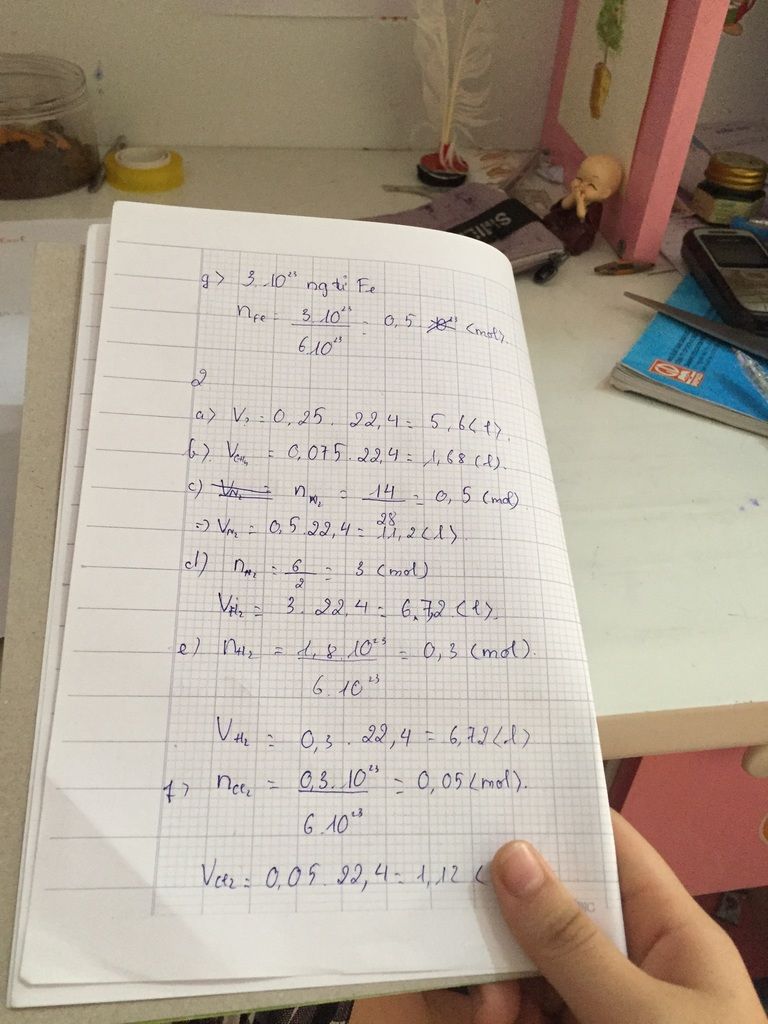 g> 3.10²³ ng tử Fe
nFe = 3.10²³ / 6.10²³ = 0,5 (mol).
2
a> V? = 0,25 . 22,4 = 5,6(l).
b) VCH₄ = 0,075 . 22,4 = 1,68(l).
c) VN₂ = nN₂ = 14 / 28 = 0,5 (mol)
=> VN₂ = 0,5 . 22,4 = 11,2(l).
d) nH₂ = 6 / 2 = 3 (mol)
VH₂ = 3 . 22,4 = 6,7,2 (l).
e) nH₂ = 1,8.10²³ / 6.10²³ = 0,3 (mol).
VH₂ = 0,3 . 22,4 = 6,72(l)
f> nCl₂ = 0,3.10²³ / 6.10²³ = 0,05(mol).
VCl₂ = 0,05 . 22,4 = 1,12 (